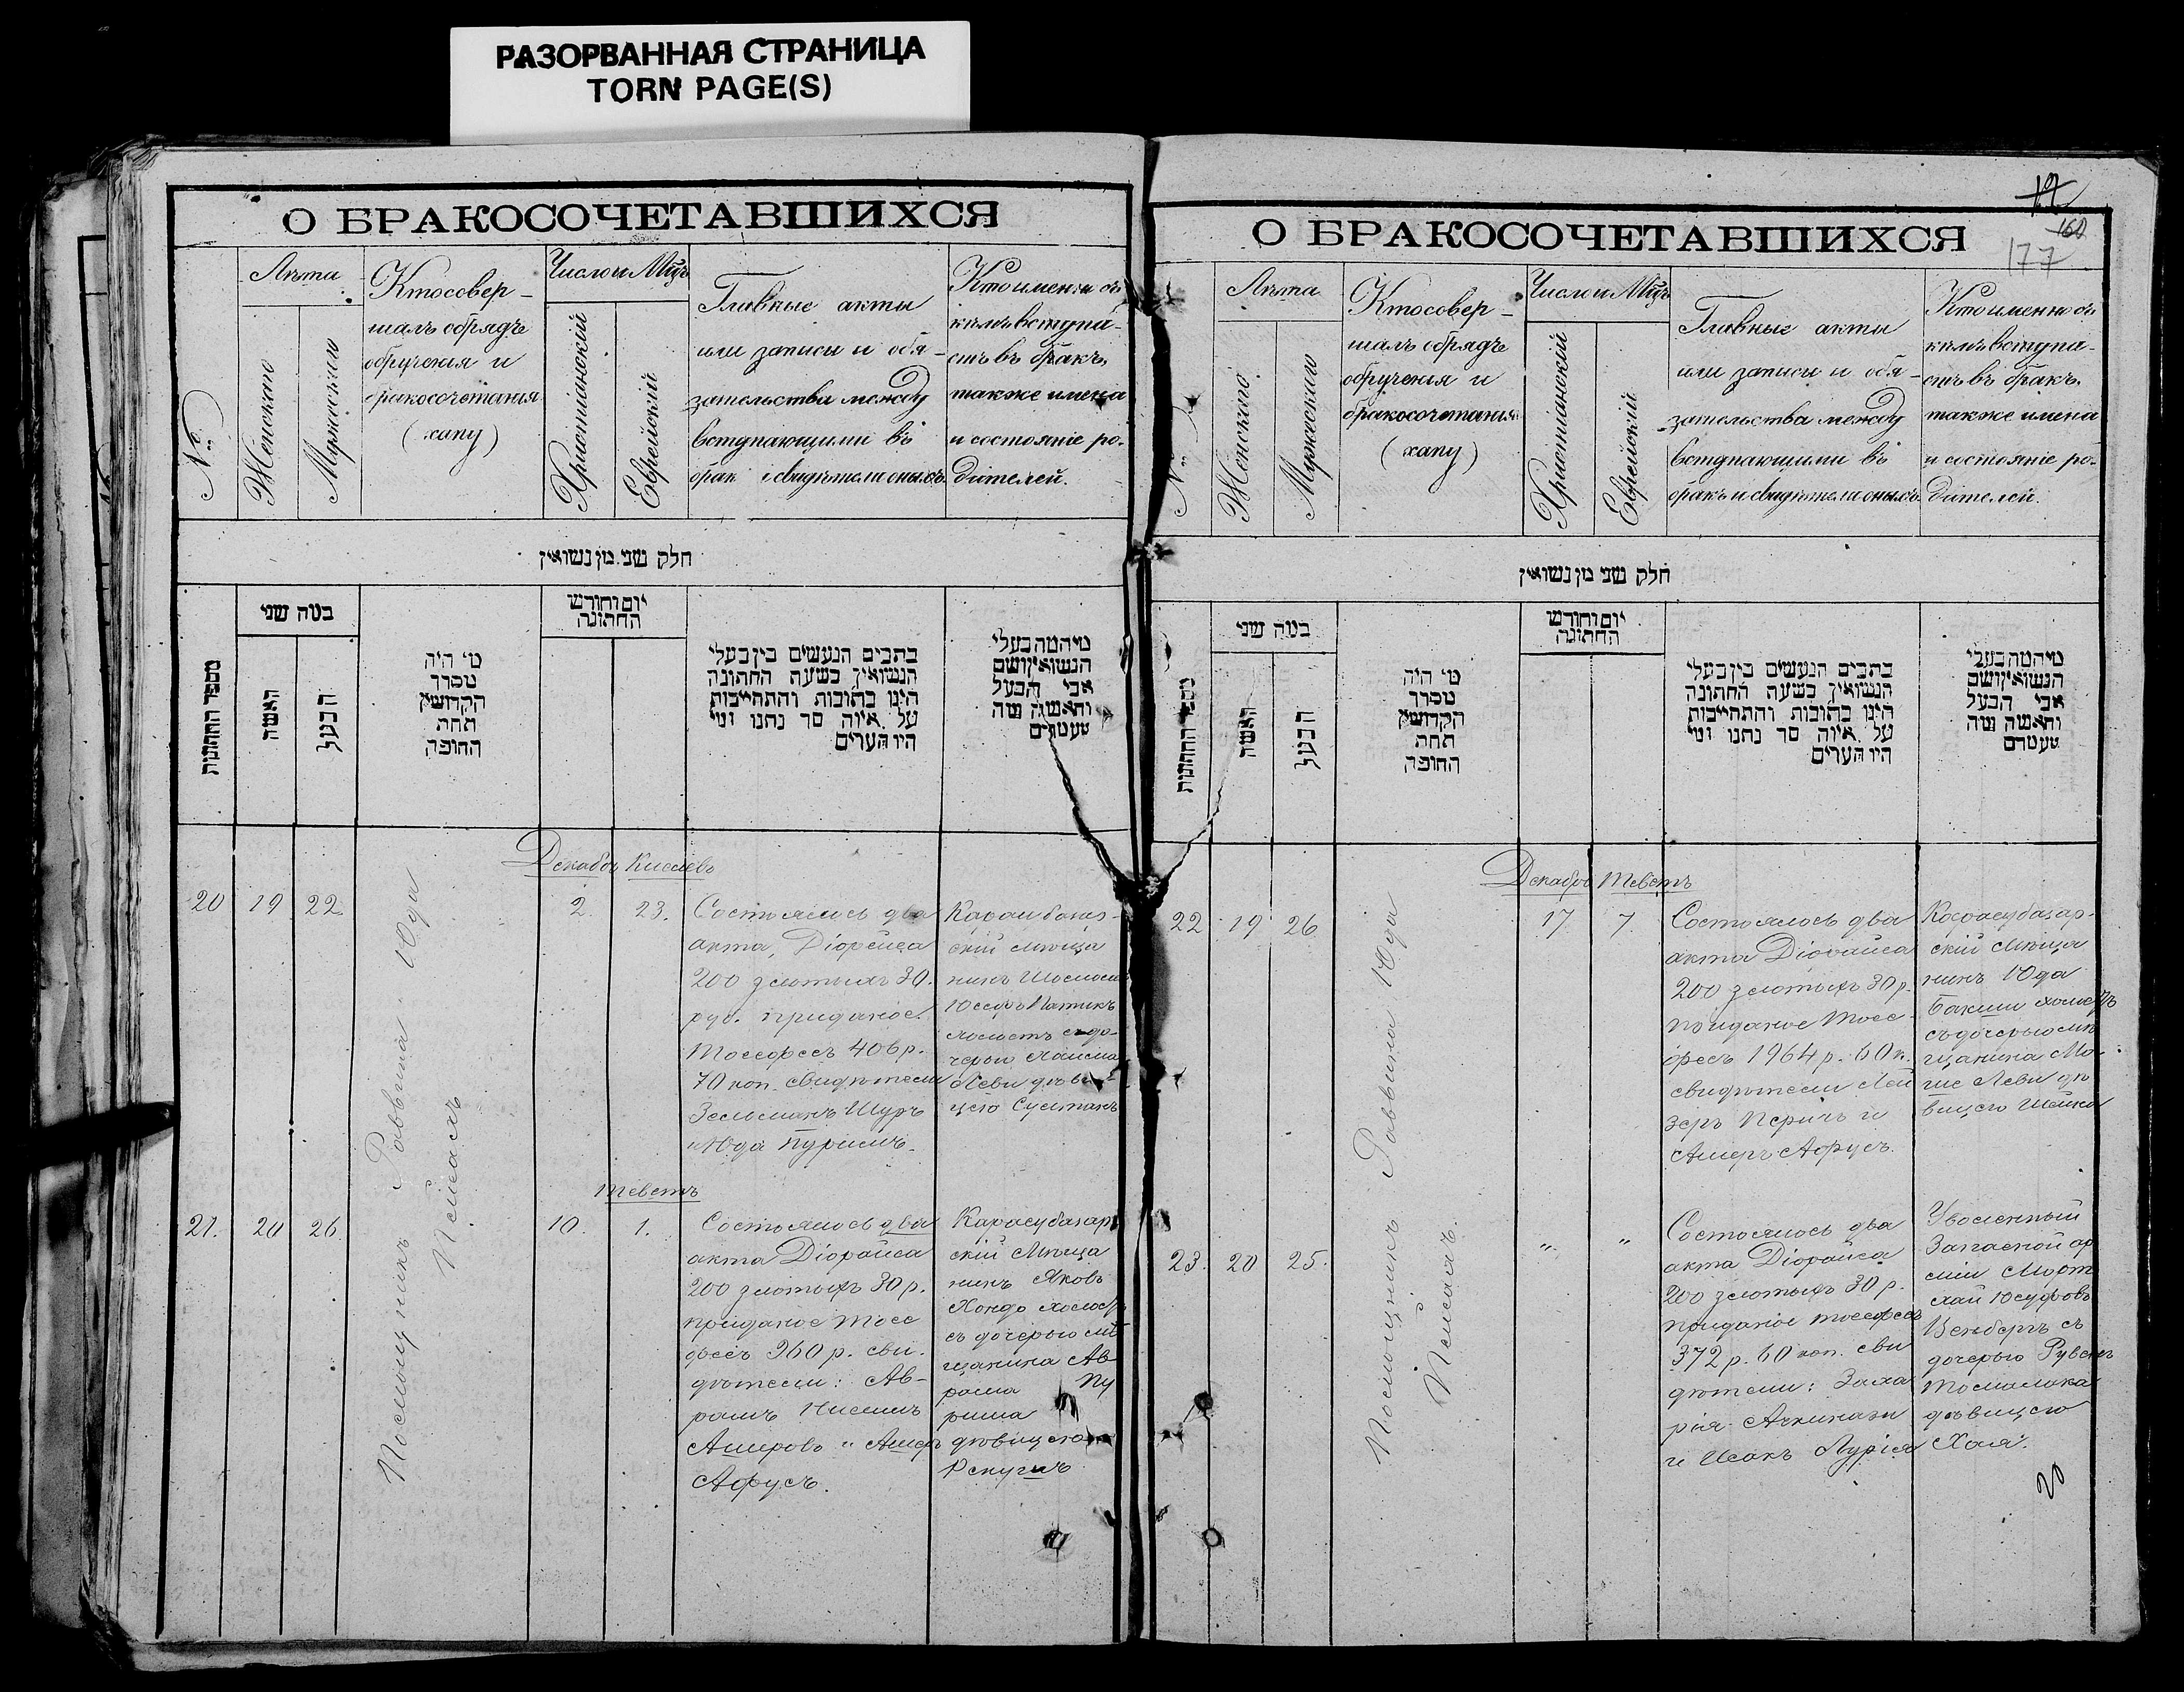 РАЗОРВАННАЯ СТРАНИЦА
TORN PAGE(S)
О БРАКОСОЧЕТАВШИХСЯ
№
Лѣта
Женскаго
Мужескаго
Кто совер-
шалъ обрядъ
обрученія и
бракосочетанія
(хапу)
Число и Мѣцъ
Христіанскій
Еврейскій
Главные акты
или записи и обя-
зательства между
вступающими въ
брак и свидѣтели оныхъ.
Кто именно съ
кѣмъ вступа-
етъ въ бракъ,
также имена
и состояніе ро-
дителей.
חלק שני מן נשואין
מספר החתונות
במה שני
האשה
הבעל
מי היה
מסדר
הקדושין
תחת
החופה
יום וחודש
החתונה
כתבים הנעשים בין בעלי
הנשואין בשעה החתונה
הינו כתובות והתחייבות
על איזה סך נתנו ומי
היו העדים
מיהמה בעלי
הנשואין ושם
אבי הבעל
והאשה מה
מעמדם
Декабрь Кислевъ
20 19 22
Посмощникъ Раввина Юда
Нейманъ
2. 23.
Состоялось два
акта, Діорайса
200 злотыхъ 30.
руб. приданое
Тоссфесъ 406 р.
70 коп. свидѣтели
Зельманъ Шуръ
и Юда Пуримъ.
скій мѣща
нинъ
холостъ съ до-
черью
Леви дѣви-
цею Султанъ
Теветъ
21. 20 26
10. 1.
Состоялось два
акта Діорайса
200 злотыхъ 30 р.
приданое Тосс
фесъ 360 р. сви-
дѣтели: Ав-
рамъ Нисимъ
Ашеровъ и Ашеръ
Афусъ.
Карасубазар
скій Мѣща
нинъ Яковъ
Хондо холостъ
съ дочерью мѣ
щанина Ав-
рама Пу
рима
дѣвицею
12
160
177
О БРАКОСОЧЕТАВШИХСЯ
№
Лѣта
Женскаго
Мужескаго
Кто совер-
шалъ обрядъ
обрученія и
бракосочетанія
(хапу)
Число и Мѣцъ
Христіанскій
Еврейскій
Главные акты
или записи и обя-
зательства между
вступающими въ
бракъ и свидѣтели оныхъ.
Кто именно съ
кѣмъ вступа-
етъ въ бракъ,
также имена
и состояніе ро-
дителей.
חלק שני מן נשואין
מספר החתונות
במה שני
האשה
הבעל
מי היה
מסדר
הקדושין
תחת
החופה
יום וחודש
החתונה
כתבים הנעשים בין בעלי
הנשואין בשעה החתונה
הינו כתובות והתחייבות
על איזה סך נתנו ומי
היו העדים
מיהמה בעלי
הנשואין ושם
אבי הבעל
והאשה מה
מעמדם
Декабрь Теветъ
22 19 26
Посмощникъ Раввина Юда
Нейманъ.
17 7
Состоялось два
акта Діорайса
200 злотыхъ 30 р.
приданое Тосс-
фесъ 1964 р. 60 к.
свидѣтели Лей
зеръ Перичъ и
Ашеръ Афусъ.
Карасубазар-
скій мѣща
нинъ Юда
Бакши холостъ
съ дочерью мѣ
щанина Мо-
ше Леви дѣ
вицею
23. 20 25.
" "
Состоялось два
акта Діорайса
200 злотыхъ 30 р.
приданое тоссфесъ
372 р. 60 коп. сви
дѣтели: Заха
рія Ачкинази
и Исакъ Лурія
Уволенный
Запасной ар
міи Морт
хай Юсуфовъ
Венбергъ съ
дочерью Рувенъ
Томалака
дѣвицею
Хая.
20